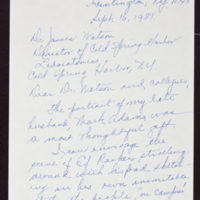 Huntington, Ny 11743
Sept. 16, 1981.
Dr. James Watson
Director of Cold Spring Harbor
Laboratories
Cold Spring Harbor, NY
Dear Dr. Watson and collegues,
The portrait of my late
husband, Mark Adams was
a most thoughtful gift.
I can envisage the
sense of Cy Parker, strolling
around with his pad sketch-
ing in his own inimitable
the people, on campus